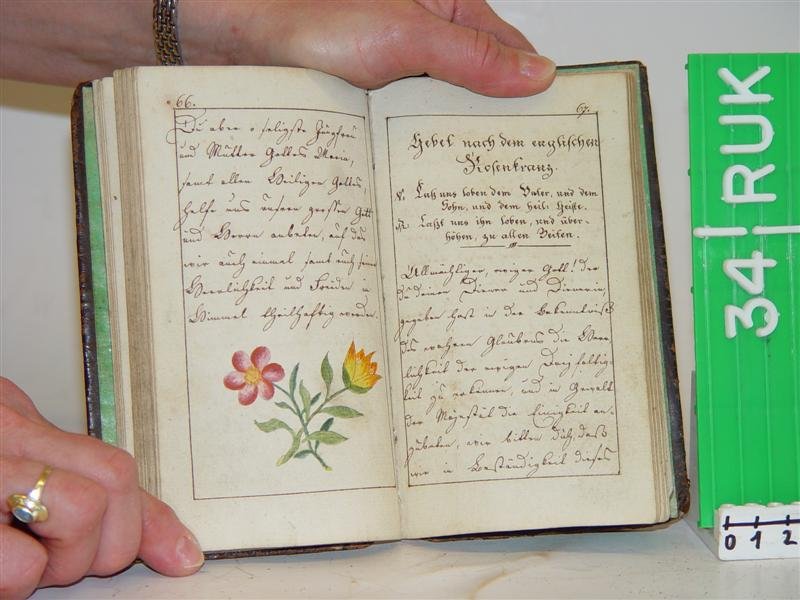 66.
Du aber o seligste Jungfrau
und Mutter Gottes Maria,
samt allen Heiligen Gottes,
helfe uns unsern grossen Gott
und Herrn anbeten, auf das
wir auch einmal samt euch seiner
Herrlichkeit und Frieden im
Himmel theilhaftig werden.
67.
Gebet nach dem englischen
Rosenkranz.
V. Laß uns loben dem Vater, und dem
Sohn, und dem heil: Geiste.
R. Laßt uns ihn loben, und über-
höhen, zu allen Zeiten.
Allmächtiger, ewiger Gott! der
du deinen Dienern und Dienerin,
gegeben hast in der Bekenntniß
des wahren Glaubens die Herr-
lichkeit der ewigen Dreyfaltig-
keit zu erkennen, und in Gewalt
der Majestät die Einigkeit an-
zubeten, wir bitten dich, daß
wir in Beständigkeit dieses
34 RUK
0 1 2